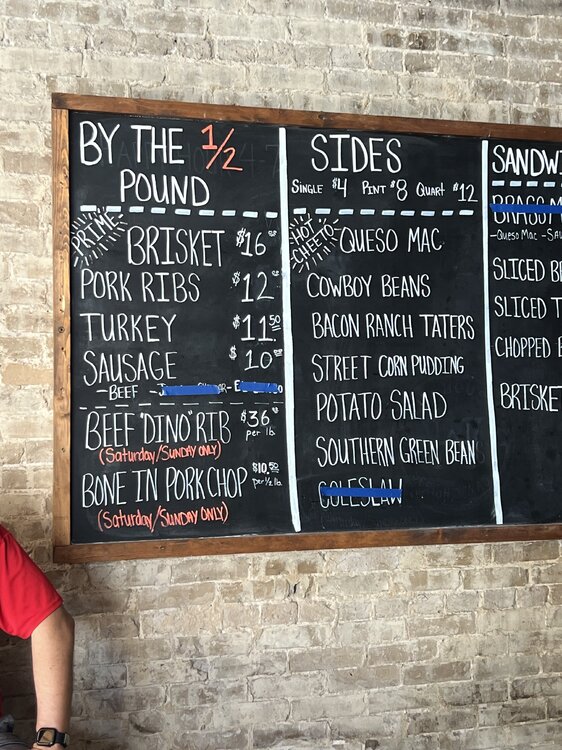 BY THE 1/2
POUND
PRIME
BRISKET $16 00
PORK RIBS $12 00
TURKEY $11.50
SAUSAGE $10 00
-BEEF
BEEF "DINO" RIB $36
per lb.
(Saturday/SUNDAY ONLY)
BONE IN PORK CHOP $10.50
per 1/2 lb.
(Saturday/SUNDAY ONLY)
SIDES
SINGLE $4 PINT $8 QUART $12
HOT
CHEETO
QUESO MAC
COWBOY BEANS
BACON RANCH TATERS
STREET CORN PUDDING
POTATO SALAD
SOUTHERN GREEN BEAN
COLESLAW
SANDWI
-QUESO MAC -SAU
SLICED B
SLICED T
CHOPPED B
BRISKET